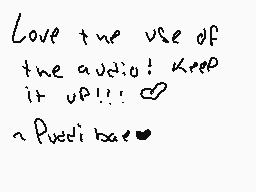 Love the use of
the audio! Keep
it up!!! ♡
~ Puddi bae ♥